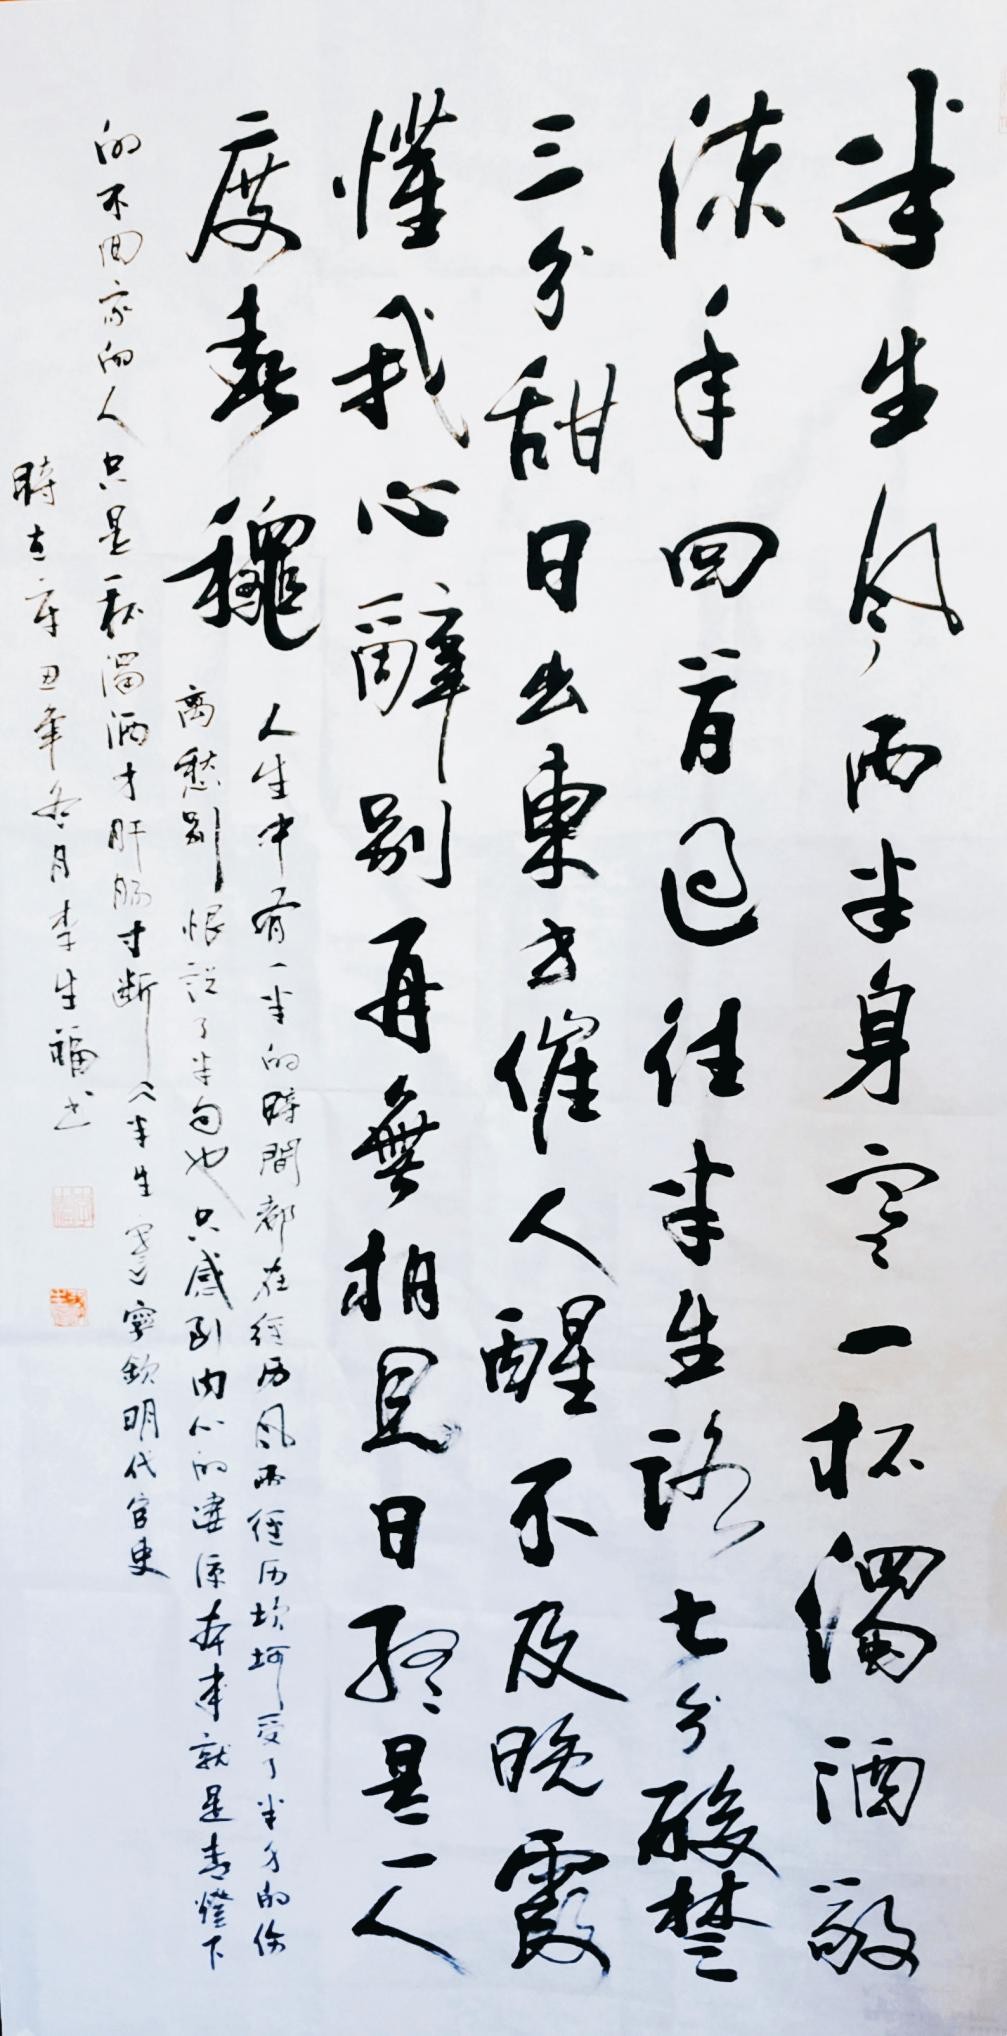 半生风雨半身寒一杯濁酒敬
流年回首过往半生路七分酸楚
三分甜日出東方催人醒不及晚霞
懂我心辭别再無相見日终是一人
度春穐
人生中有一半的時間都在经历风雨经历坎坷受了半身的伤
离愁别恨説了半句也只感到内心的凄凉本来就是青燈下
的不回家的人只是一杯濁酒才肝肠寸断《半生寒》寧欽明代官吏
時在辛丑年冬月李生福书